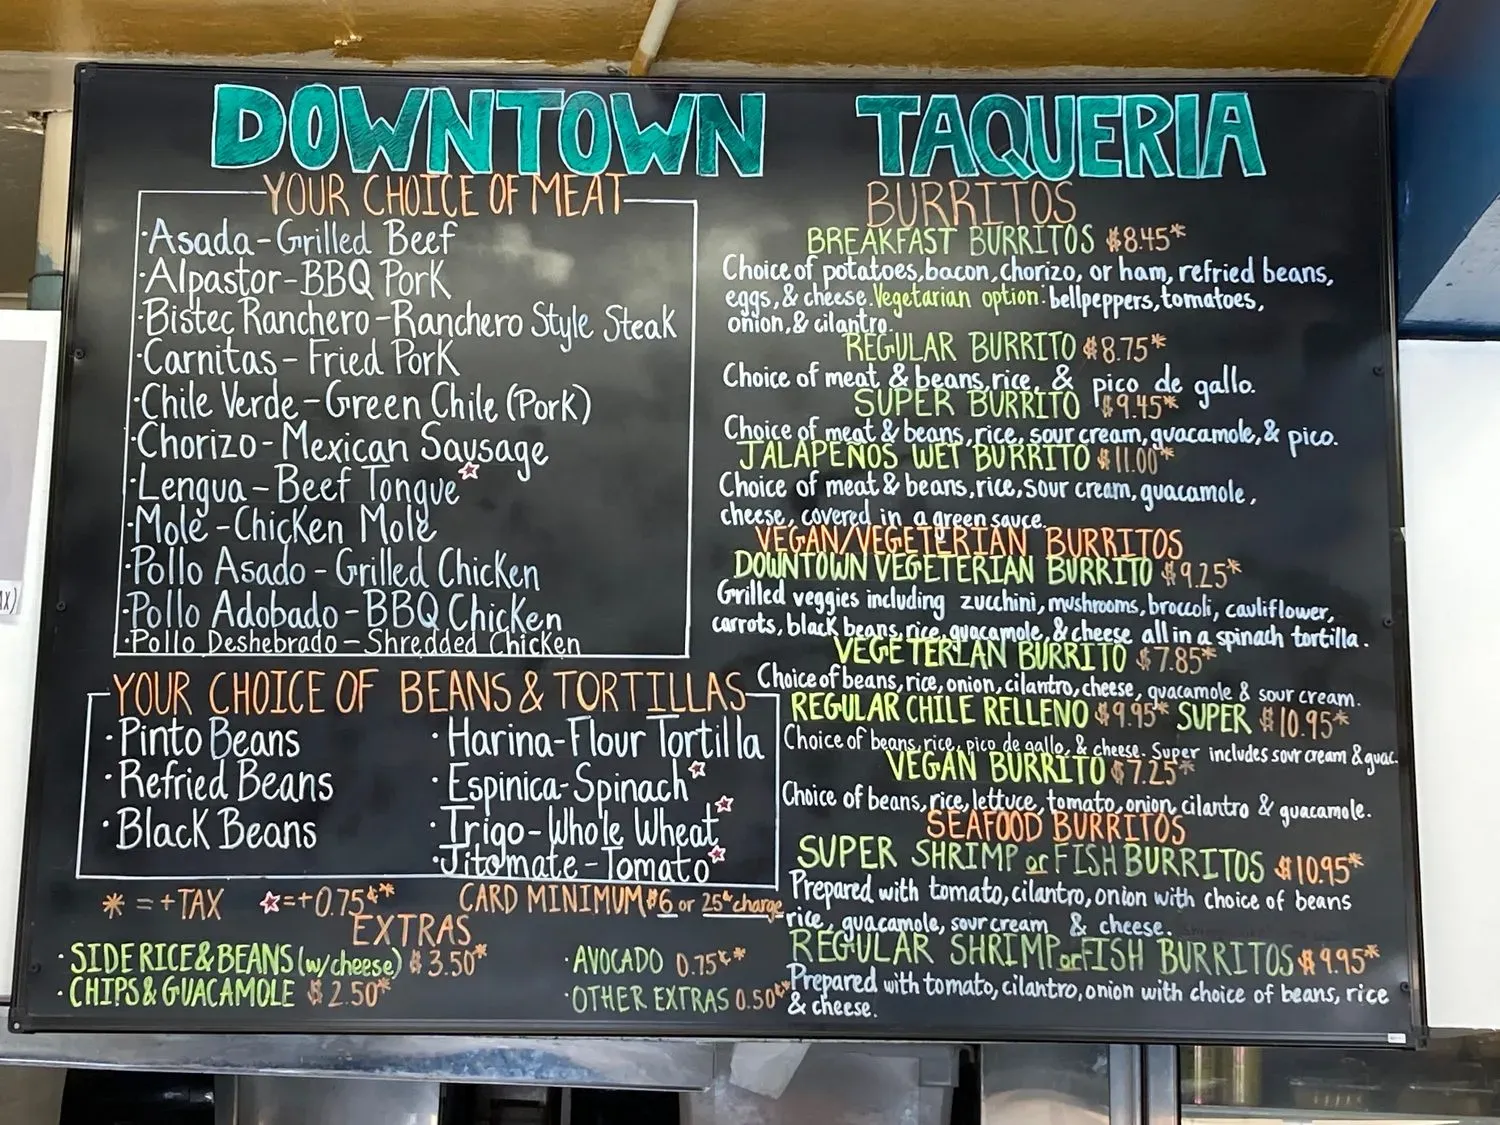 DOWNTOWN TAQUERIA
YOUR CHOICE OF MEAT
·Asada-Grilled Beef
·Alpastor-BBQ Pork
·Bistec Ranchero-Ranchero Style Steak
·Carnitas-Fried Pork
·Chile Verde-Green Chile (Pork)
·Chorizo-Mexican Sausage
·Lengua-Beef Tongue☆
·Mole-Chicken Mole
·Pollo Asado-Grilled Chicken
·Pollo Adobado-BBQ Chicken
·Pollo Deshebrado-Shredded Chicken
YOUR CHOICE OF BEANS & TORTILLAS
·Pinto Beans
·Refried Beans
·Black Beans
·Harina-Flour Tortilla
·Espinica-Spinach☆
·Trigo-Whole Wheat☆
·Jitomate-Tomato☆
* = +TAX ☆=+0.75¢* CARD MINIMUM $6 or 25¢ charge
EXTRAS
·SIDE RICE & BEANS (w/cheese) $3.50*
·CHIPS & GUACAMOLE $2.50*
·AVOCADO 0.75¢*
·OTHER EXTRAS 0.50¢*
BURRITOS
BREAKFAST BURRITOS $8.45*
Choice of potatoes, bacon, chorizo, or ham, refried beans,
eggs, & cheese. Vegetarian option: bellpeppers, tomatoes,
onion, & cilantro.
REGULAR BURRITO $8.75*
Choice of meat & beans, rice, & pico de gallo.
SUPER BURRITO $9.45*
Choice of meat & beans, rice, sour cream, guacamole, & pico.
JALAPEÑOS WET BURRITO $11.00*
Choice of meat & beans, rice, sour cream, guacamole,
cheese, covered in a green sauce.
VEGAN/VEGETERIAN BURRITOS
DOWNTOWN VEGETERIAN BURRITO $9.25*
Grilled veggies including zucchini, mushrooms, broccoli, cauliflower,
carrots, black beans, rice, guacamole, & cheese all in a spinach tortilla.
VEGETERIAN BURRITO $7.85*
Choice of beans, rice, onion, cilantro, cheese, guacamole & sour cream.
REGULAR CHILE RELLENO $9.95* SUPER $10.95*
Choice of beans, rice, pico de gallo, & cheese. Super includes sour cream & guac.
VEGAN BURRITO $7.25*
Choice of beans, rice, lettuce, tomato, onion, cilantro & guacamole.
SEAFOOD BURRITOS
SUPER SHRIMP or FISH BURRITOS $10.95*
Prepared with tomato, cilantro, onion with choice of beans
rice, guacamole, sour cream & cheese.
REGULAR SHRIMP or FISH BURRITOS $9.95*
Prepared with tomato, cilantro, onion with choice of beans, rice
& cheese.